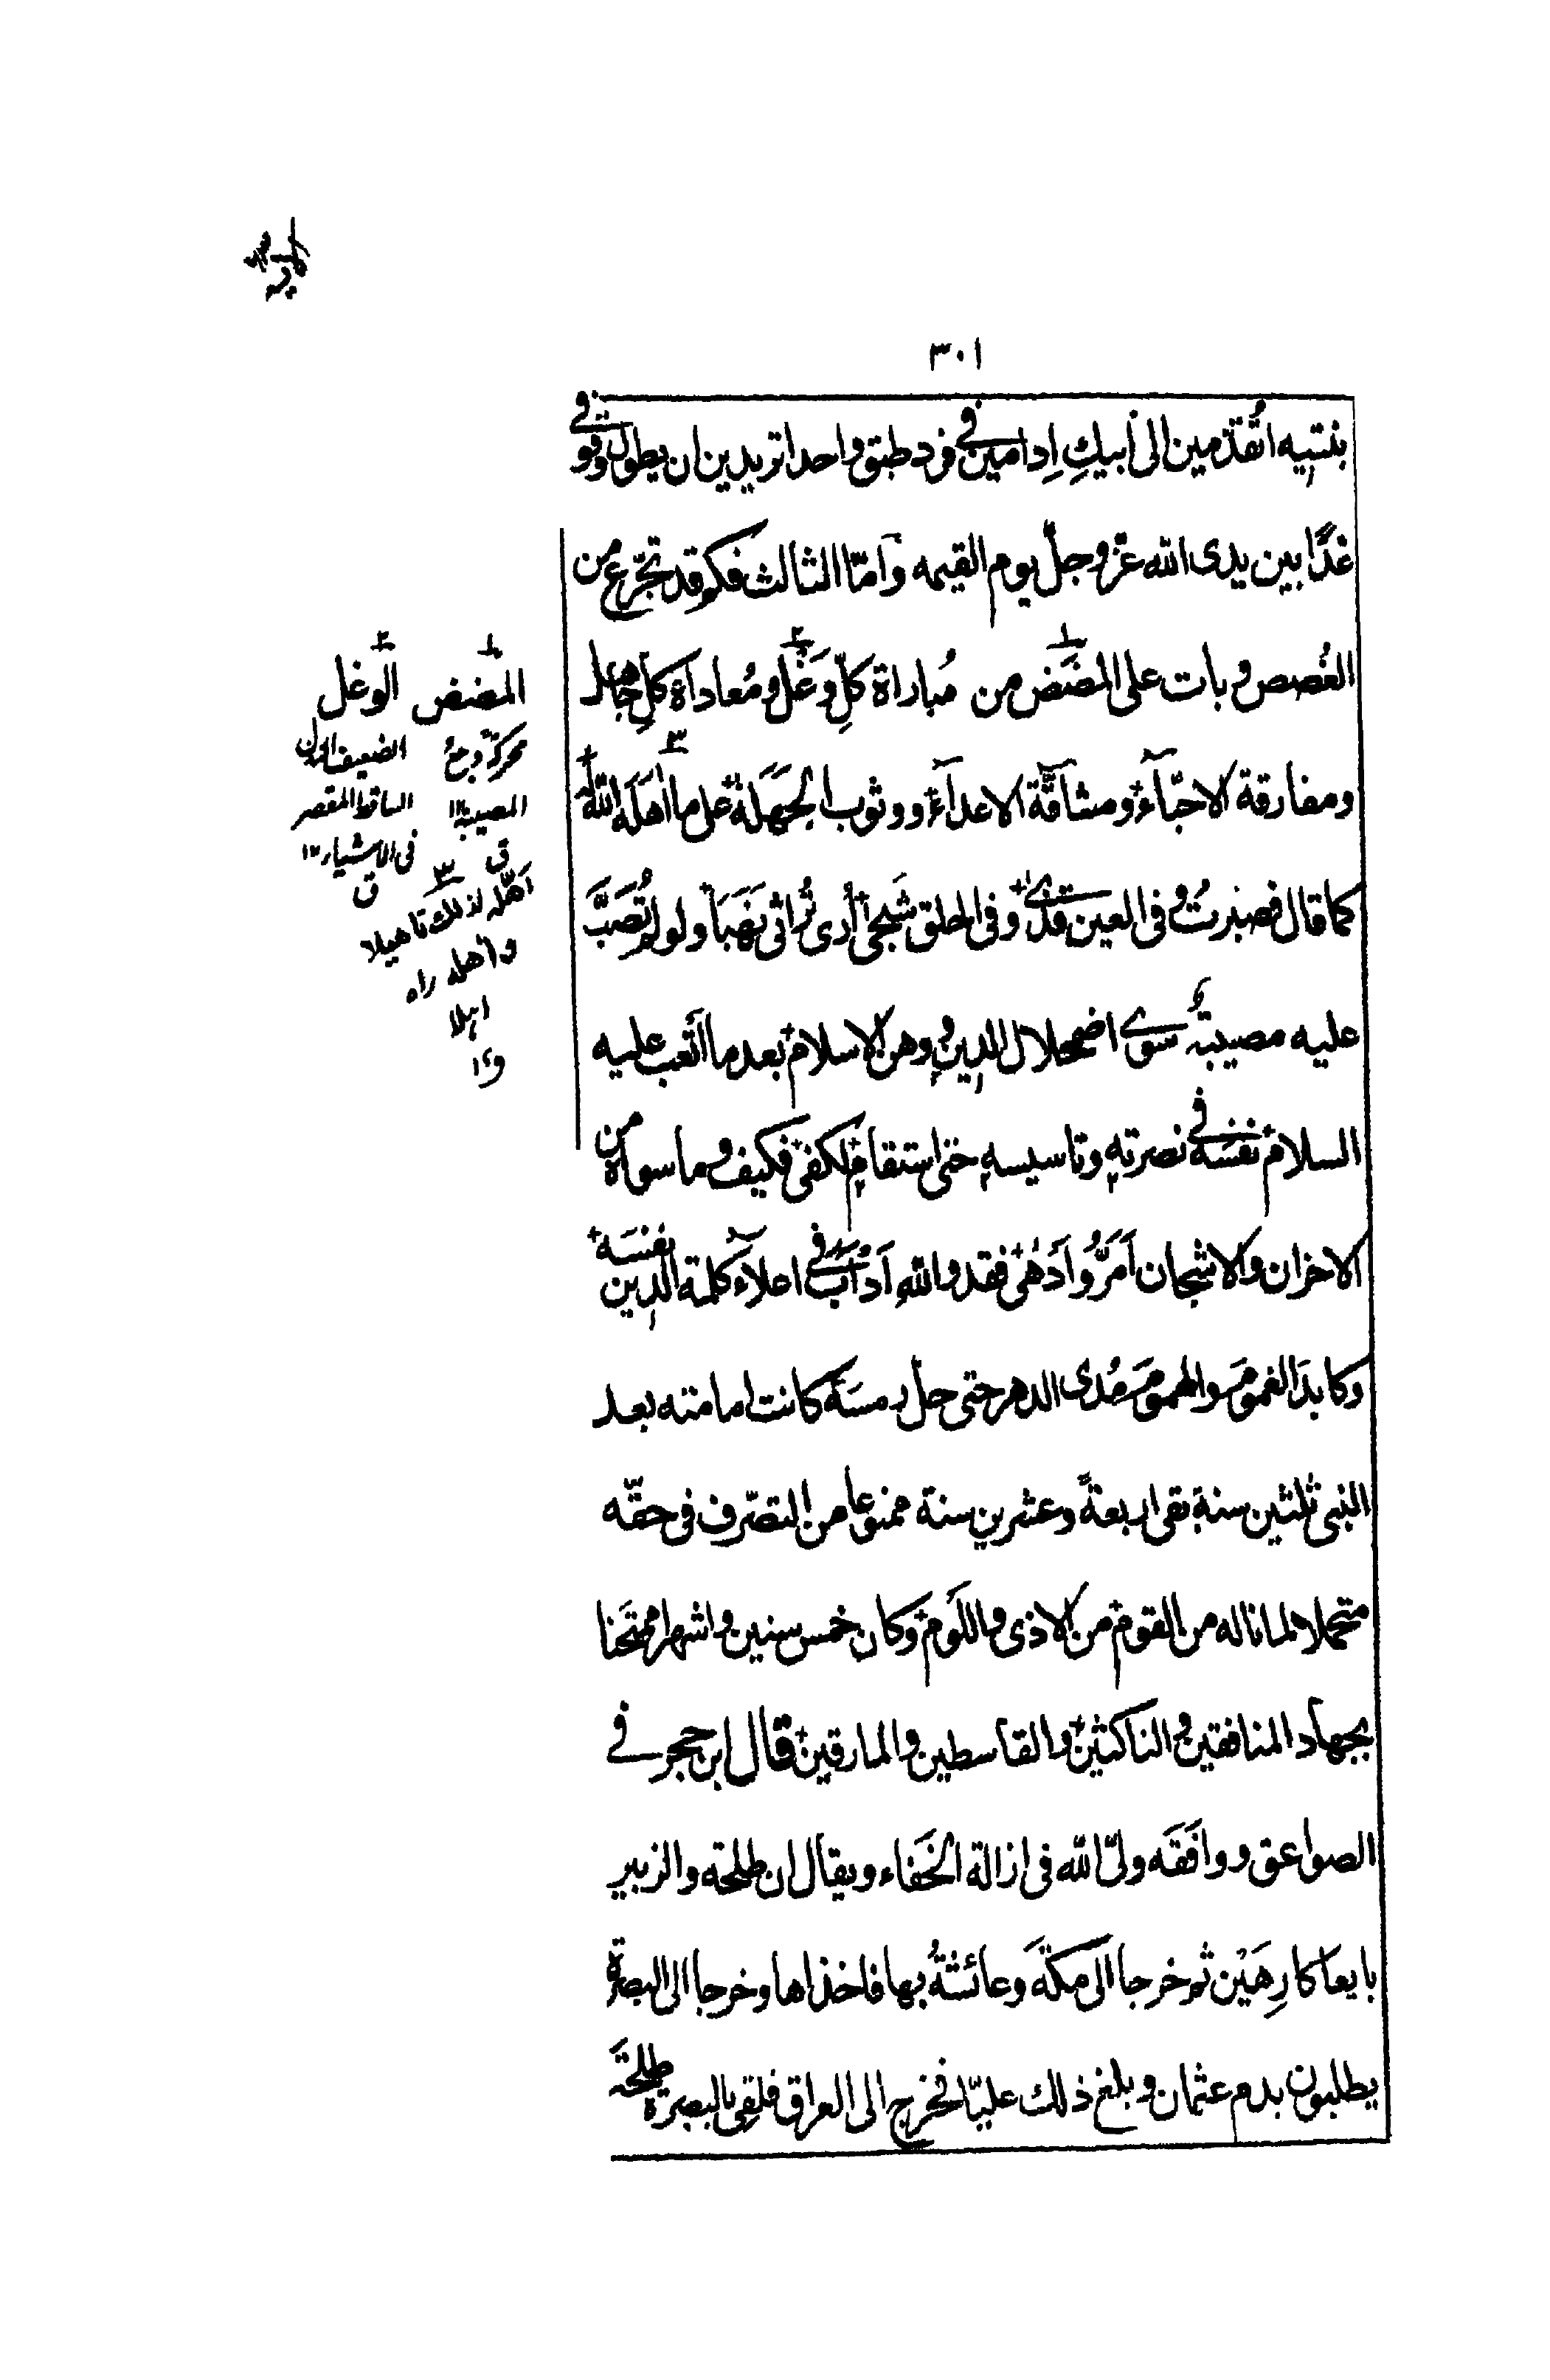 ٣٠١
بنتيه اتُقدّمين الى أبيكِ اِدامين في فرد طبق واحد اتريدين ان يطول وقوفي
غدًا بين يدى الله عزّ وجلّ يوم القيمه وَامّا الثالث فكم قد تجرّع من
الغُصص وبات على المَضَض من مُباراة كلِّ وَغْل ومُعاداة كلِّ جاهل
ومفارقة الاحبّآء ومشاقّة الاعدآء ووثوب الجَهَلة على ما اَهَلَه اللهُ له
كما قال فصبرتُ وفى العين قذًى وفى الحلق شَجىً أرى تُراثى نَهَبًا ولو لم تُصَبَّ
عليه مصيبةٌ سوى اضمحلال الدين ووهن الاسلام بعد ما اَتعب عليه
السلام نفسَه في نصرته وتاسيسه حتى استقام لكفى فكيف وما سواه من
الاحزان والاشجان اَمَرُّ وأدْهٰى فقد واللهِ اَدْأبَ نفسَه في اعلآء كلمة الدين
وكابدَ الغمومَ والهمومَ مُدى الدهر حتى حلّ رمسَه كانت امامته بعد
النبى ثلثين سنة بقى اربعةً وعشرين سنة ممنوعا من التصرّف فى حقّه
متحملا لما ناله من القوم من الاذى واللَوم وكان خمس سنين واشهرا ممتَحَنا
بجهاد المنافقين والناكثين والقاسطين والمارقين قال ابن حجر في
الصواعق ووافَقَه ولىّ الله فى ازالة الخَفاء ويقال ان طلحة والزبير
بايعا كارِهَيْن ثم خرجا الى مكةَ وعائشةُ بها فاخذاها وخرجا الى البصرة
يطلبون بدم عثمان وبلغ ذلك عليّا فخرج الى العراق فلقِى بالبصرة طلحةَ
١ المضض
محركة وجعُ
المصيبة ١٢
ق
٢ الوغل
الضعيف النذل
الساقط المقصر
فى الاشياء ١٢
ق
٣ اَهّله لذلك تاهيلا
وآهله راه
اهلا
ق ١٢